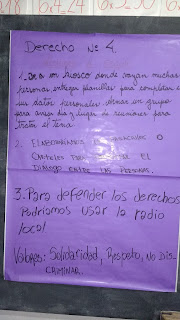 Derecho Nº 4.
1. En un kiosco donde vayan muchas
personas entregar planillas para completar
sus datos personales, armar un grupo
para avisar día y lugar de reuniones para
tratar el tema
2. ELABORARÍAMOS O
CARTELES EL
DIÁLOGO ENTRE LAS PERSONAS.
3. Para defender los derechos
Podríamos usar la radio
local.
Valores: Solidaridad, Respeto, NO DIS-
CRIMINAR.